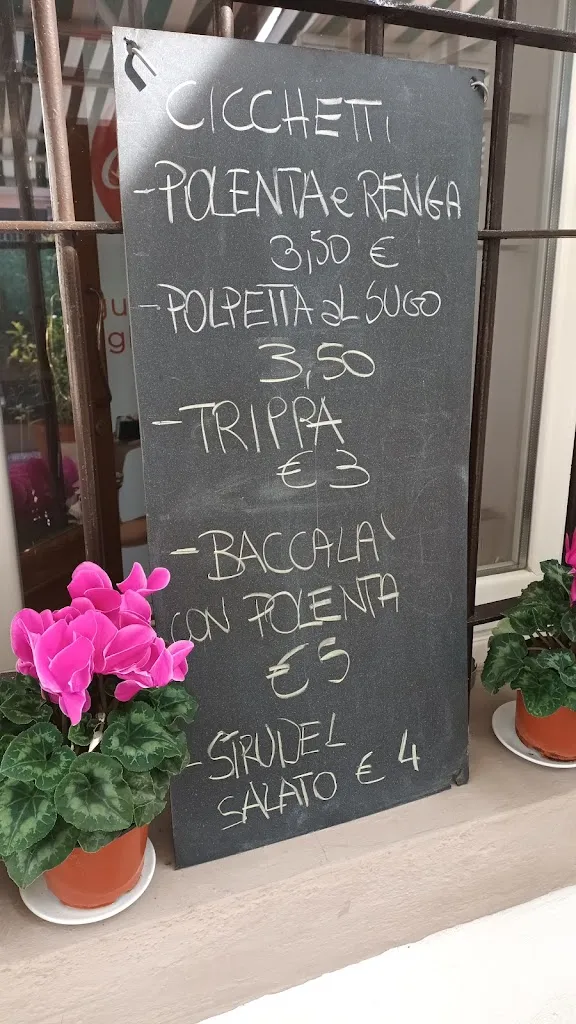 CICCHETTI
- POLENTA e RENGA
3,50 €
- POLPETTA al SUGO
3,50
- TRIPPA
€ 3
- BACCALA'
CON POLENTA
€ 5
- STRUDEL
SALATO € 4